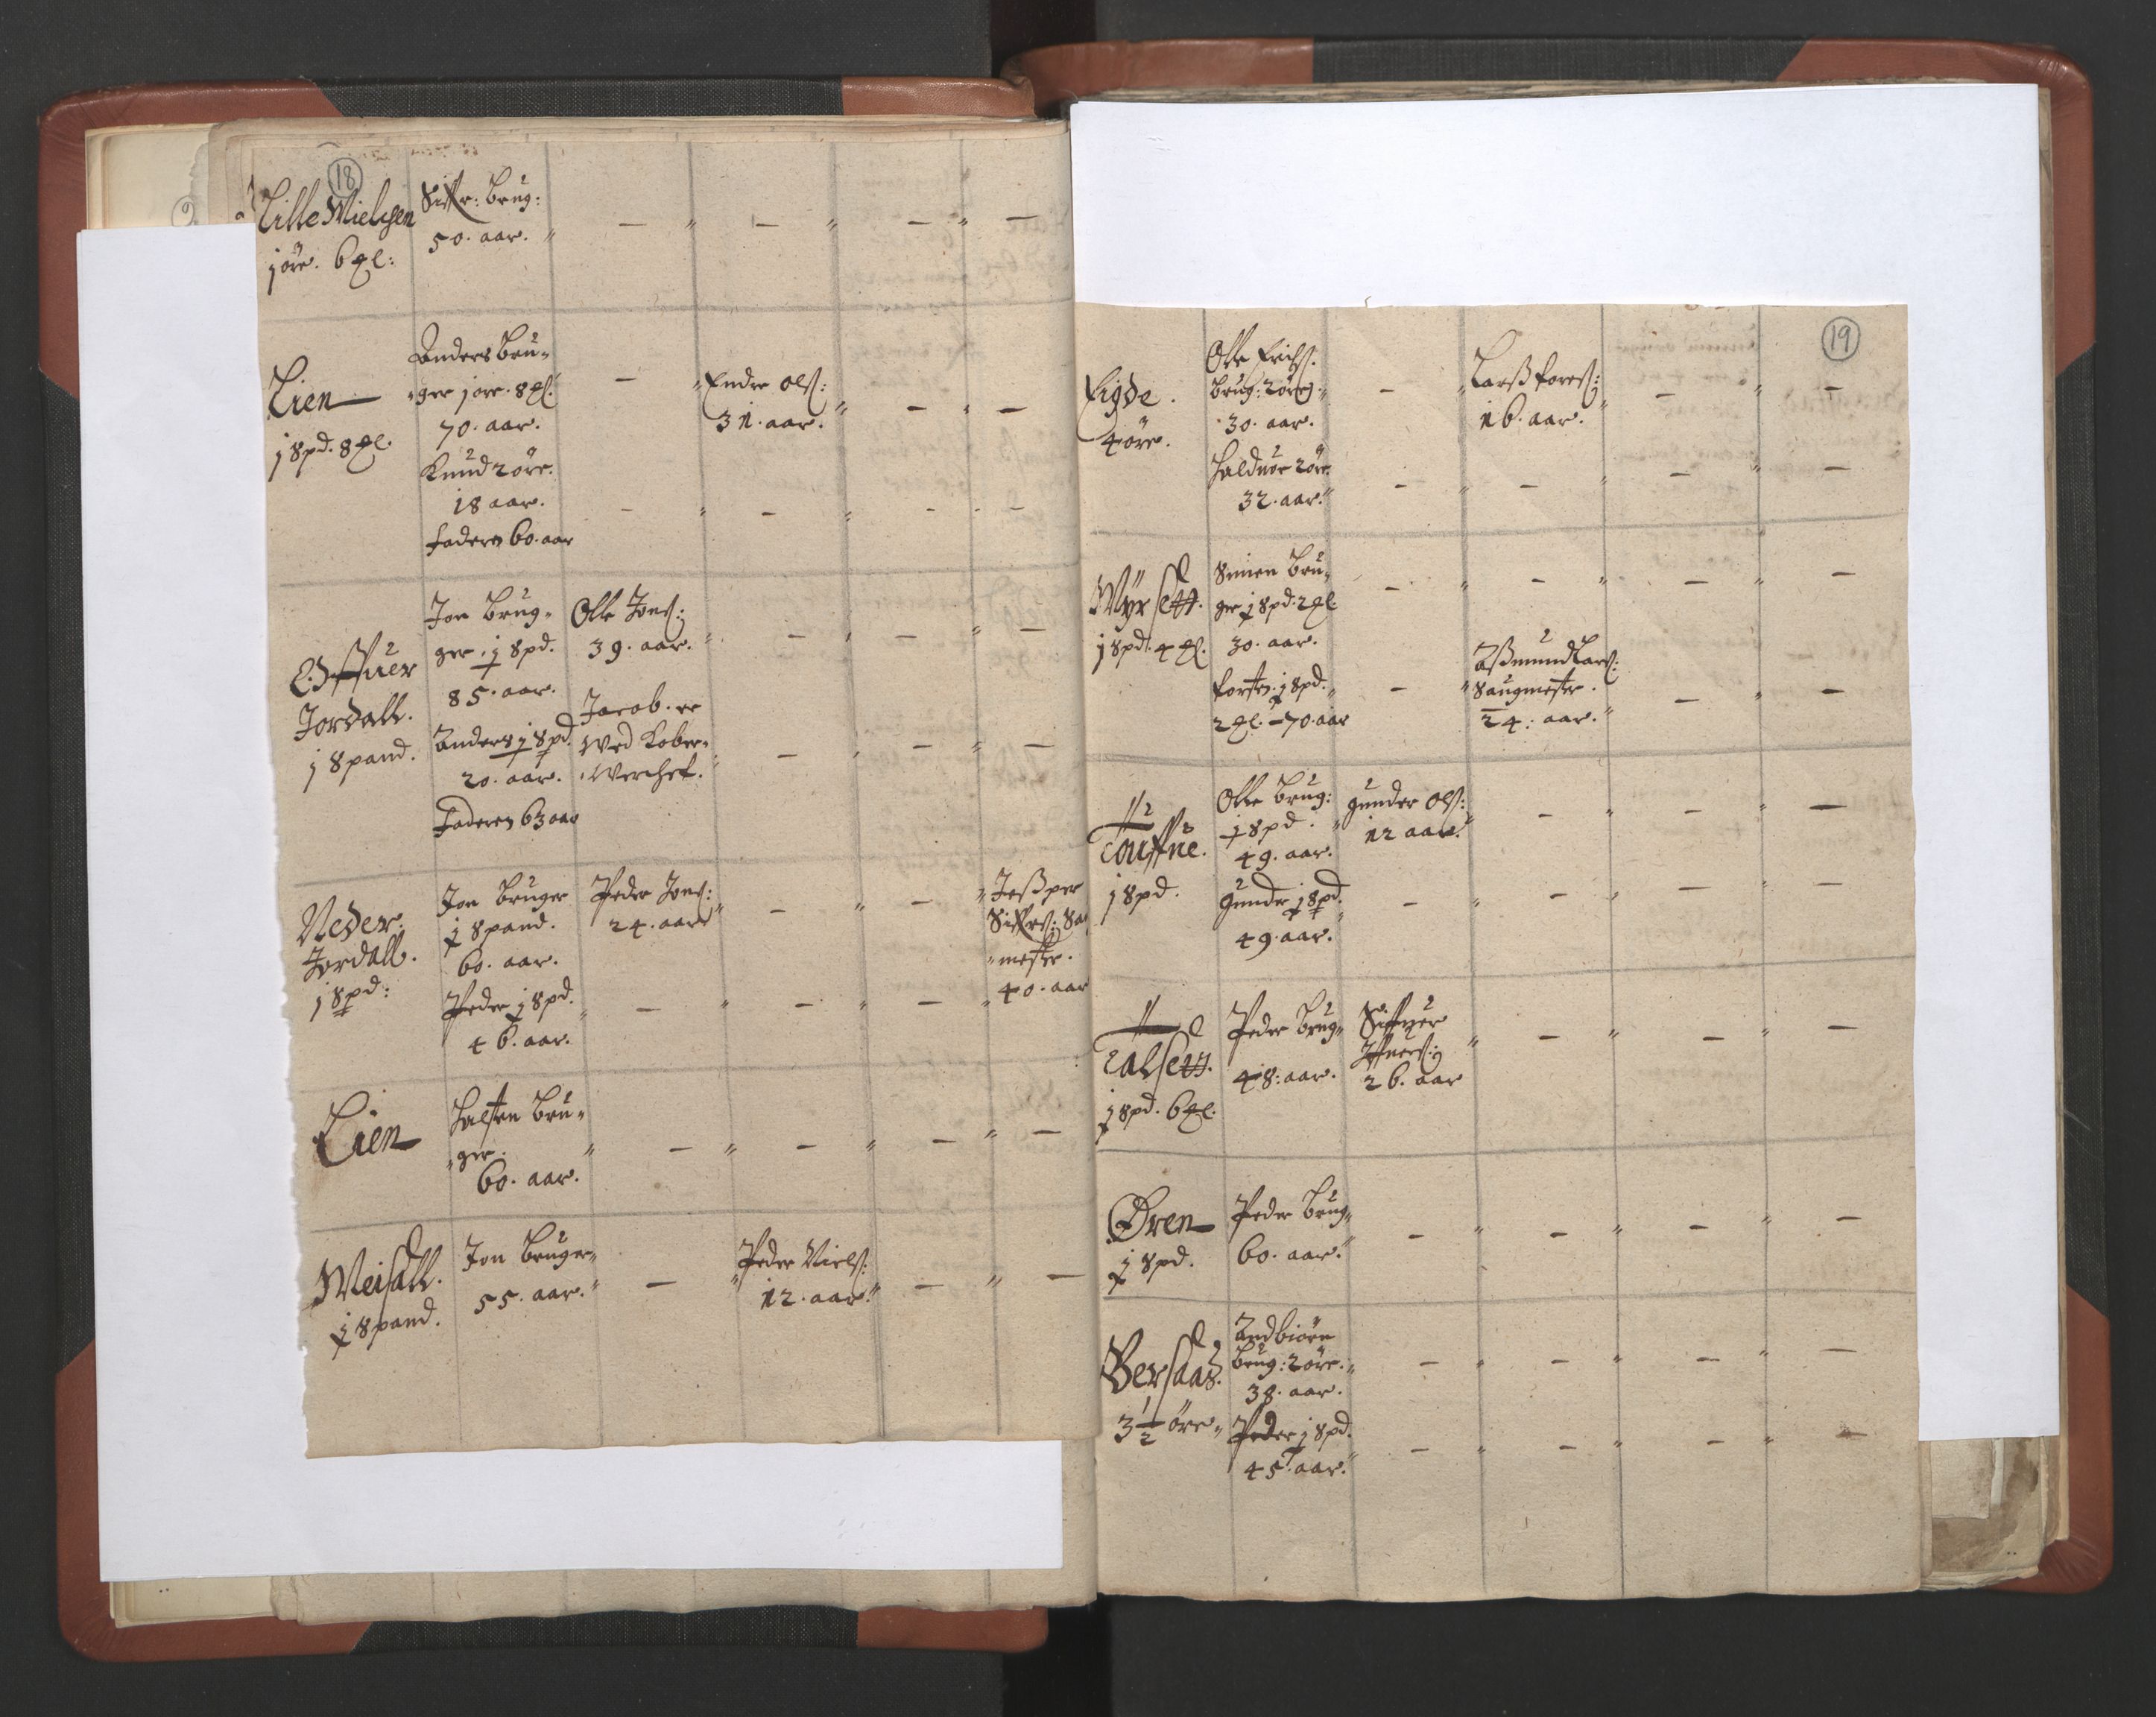 18
Lille Mielgen
1 öre. 6 ℔l:
Siffr: brug:
50. aar.
Lien
1 Spd. 8 ℔l.
Anders bru-
ger 1 öre. 8 ℔l.
70. aar.
Knud 2 öre.
18 aar.
faderen 60. aar
Endre Olß:
31. aar.
Öffuer
Jordall.
1 Spand.
Jon brug-
ger ½ Spd.
85. aar.
Anders ½ Spd.
20. aar.
Faderen 63 aar
Olle Jonß:
39. aar.
Jacob. er
Wed Kober-
Werchet.
Neder
Jordall.
1 Spd:
Jon bruger
½ Spand.
60. aar.
Peder ½ Spd.
46. aar.
Peder Jonß:
24. aar
Jeßper
Siffrß: Sa
mester.
40. aar
Lien
Halsten bru-
ger.
60. aar.
Meisall.
½ Spand.
Jon bruger
55. aar.
Peder Nielß:
12. aar.
19
Eigde.
4 öre.
Olle Erichß.
brug: 2 öre
30. aar.
Halduor 2 öre
32. aar.
Larß Toreß:
16. aar.
Myrsett.
1 Spd. 4 ℔l.
Simen bru-
ger ½ Spd. 2 ℔l.
30. aar.
Torsten ½ Spd.
2 ℔l. - 70. aar
Aßmund Larß:
Saugmester.
24. aar.
Touffue.
1 Spd.
Olle brug:
½ Spd.
49. aar.
Gunder ½ Spd.
49. aar.
Gunder Olß:
12 aar.
Talsett.
½ Spd. 6 ℔l.
Peder brug
48. aar.
Siffuer
26. aar
Øren
½ Spd.
Peder brug
60. aar.
Bersaas.
3½ öre
Andbiörn
brug: 2 öre.
38. aar.
Peder ½ Spd.
45. aar.